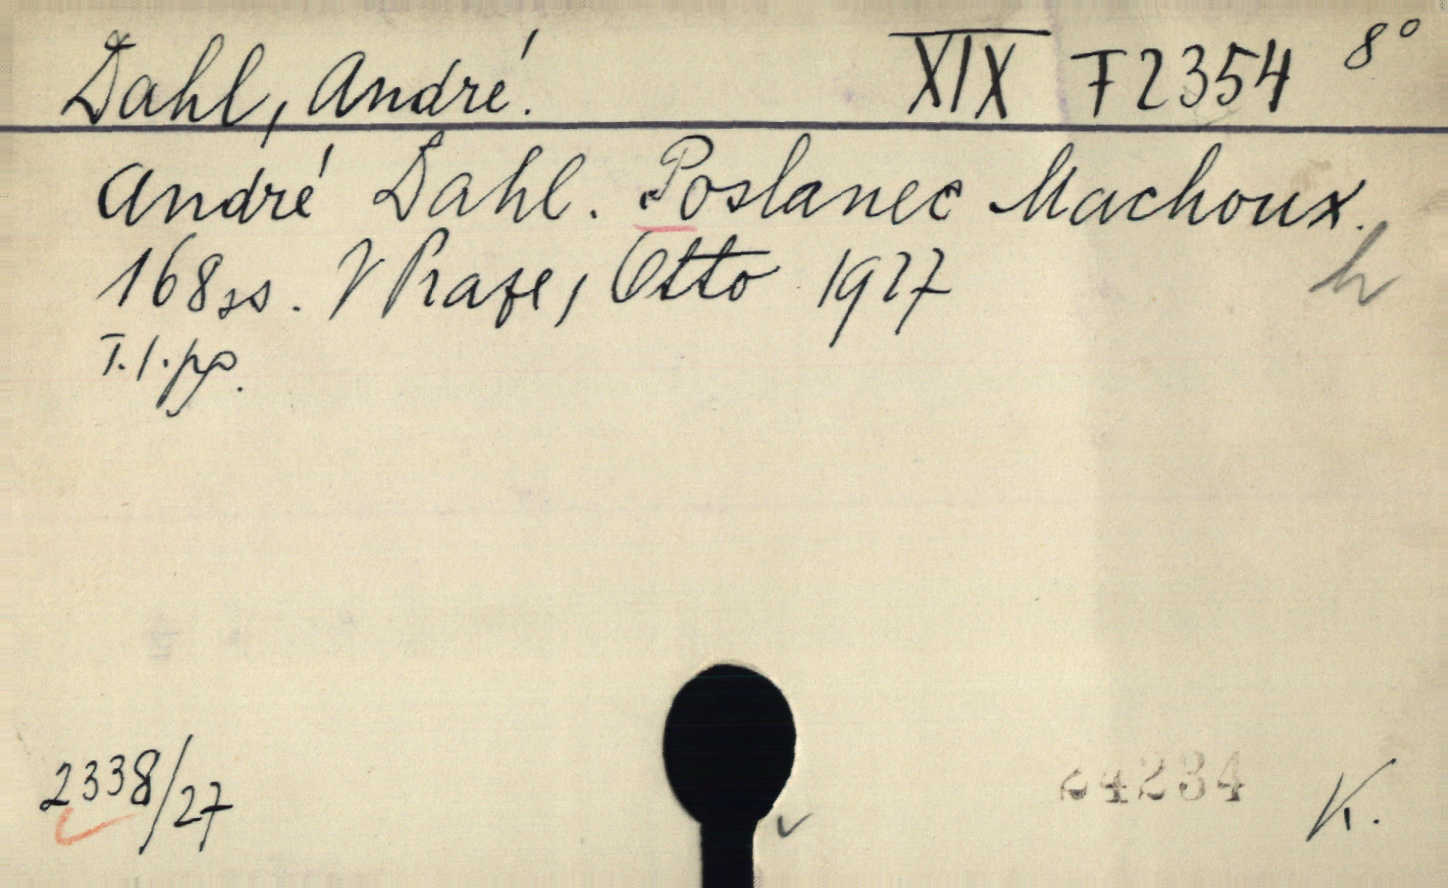 Dahl, André. XIX F 2354 8°
André Dahl. Poslanec Machoux.
168 ss. V Praze, Otto 1927
h
2338/27
24234 K.